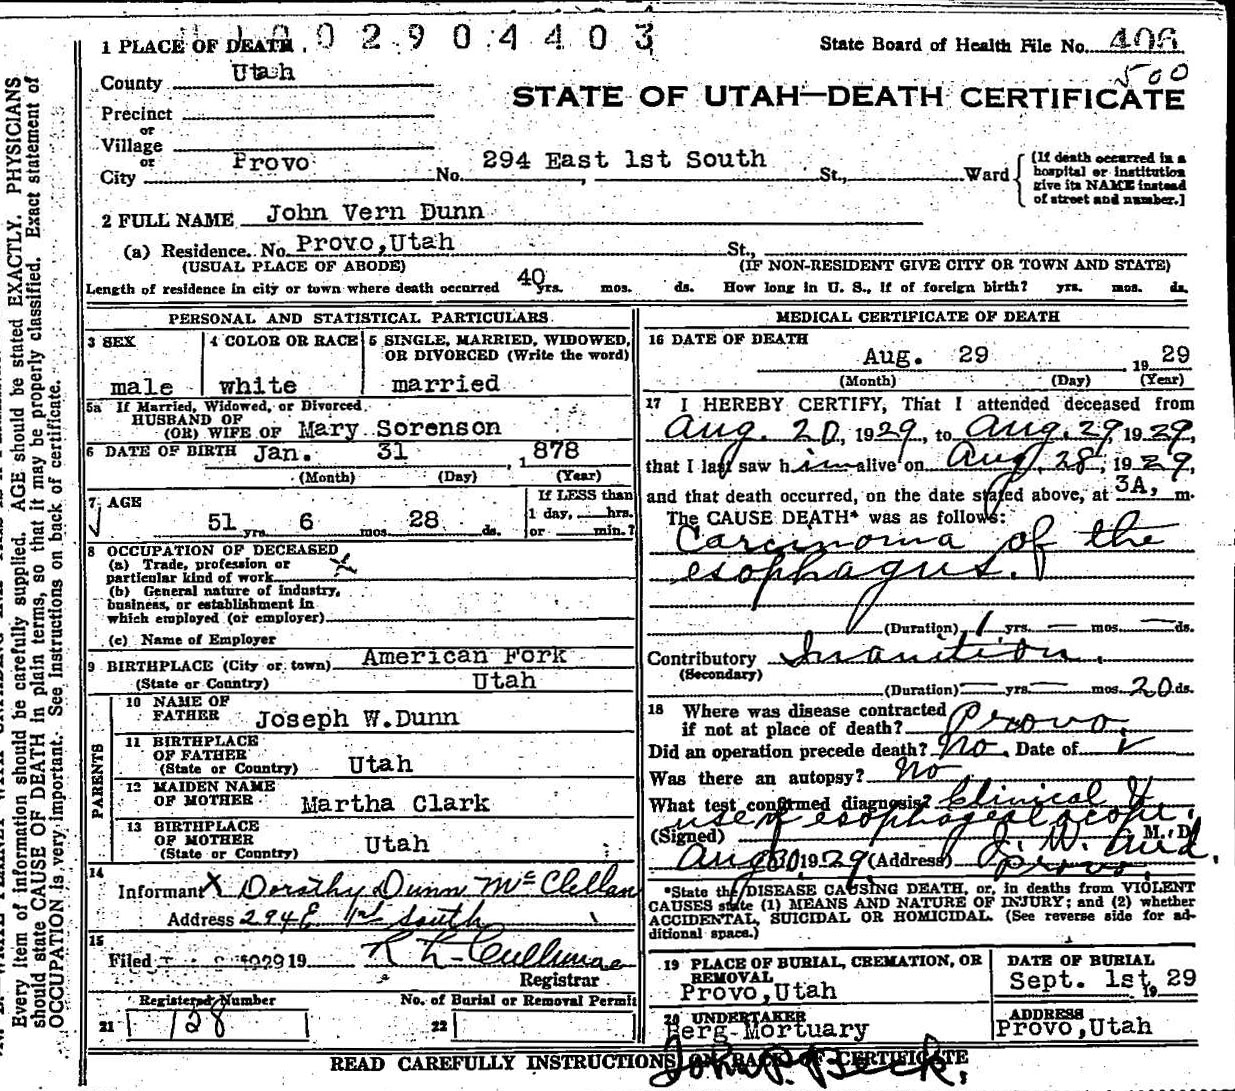 002904403
1 PLACE OF DEATH
State Board of Health File No. 406
500
County Utah
STATE OF UTAH—DEATH CERTIFICATE
Precinct
or
Village
or
City Provo No. 294 East 1st South St., Ward
[If death occurred in a
hospital or institution
give its NAME instead
of street and number.]
2 FULL NAME John Vern Dunn
(a) Residence. No. Provo,Utah St.,
(USUAL PLACE OF ABODE) (IF NON-RESIDENT GIVE CITY OR TOWN AND STATE)
Length of residence in city or town where death occurred 40 yrs. mos. ds. How long in U. S., if of foreign birth? yrs. mos. ds.
PERSONAL AND STATISTICAL PARTICULARS
3 SEX
male
4 COLOR OR RACE
white
5 SINGLE, MARRIED, WIDOWED,
OR DIVORCED (Write the word)
married
5a If Married, Widowed, or Divorced
HUSBAND OF
(OR) WIFE OF Mary Sorenson
6 DATE OF BIRTH Jan. 31 , 1878
(Month) (Day) (Year)
7 AGE
51 yrs. 6 mos. 28 ds.
If LESS than
1 day, hrs.
or min.?
8 OCCUPATION OF DECEASED
(a) Trade, profession or
particular kind of work
(b) General nature of industry,
business, or establishment in
which employed (or employer)
(c) Name of Employer
9 BIRTHPLACE (City or town) American Fork
(State or Country) Utah
PARENTS
10 NAME OF
FATHER Joseph W.Dunn
11 BIRTHPLACE
OF FATHER
(State or Country) Utah
12 MAIDEN NAME
OF MOTHER Martha Clark
13 BIRTHPLACE
OF MOTHER
(State or Country) Utah
14
Informant X Dorothy Dunn McClellan
Address 294 E 1st South
15
Filed 1929 19
Registrar
Registered Number
21 128
No. of Burial or Removal Permit
22
MEDICAL CERTIFICATE OF DEATH
16 DATE OF DEATH
Aug. 29 19 29
(Month) (Day) (Year)
17 I HEREBY CERTIFY, That I attended deceased from
Aug. 20, 1929, to Aug. 29 1929,
that I last saw him alive on Aug. 28, 1929,
and that death occurred, on the date stated above, at 3A, m.
The CAUSE DEATH* was as follows:
Carcinoma of the
esophagus.
(Duration) 1 yrs. — mos. — ds.
Contributory Inanition.
(Secondary)
(Duration) — yrs. — mos. 20 ds.
18 Where was disease contracted
if not at place of death? Provo.
Did an operation precede death? No. Date of ✓
Was there an autopsy? No
What test confirmed diagnosis? Clinical &
use of esophagoscope.
(Signed) J. W. Aird. M. D.
Aug 30, 1929 (Address) Provo.
*State the DISEASE CAUSING DEATH, or, in deaths from VIOLENT
CAUSES state (1) MEANS AND NATURE OF INJURY; and (2) whether
ACCIDENTAL, SUICIDAL OR HOMICIDAL. (See reverse side for ad-
ditional space.)
19 PLACE OF BURIAL, CREMATION, OR
REMOVAL
Provo,Utah
DATE OF BURIAL
Sept. 1st, 19 29
20 UNDERTAKER
Berg Mortuary
ADDRESS
Provo,Utah
READ CAREFULLY INSTRUCTIONS ON BACK OF CERTIFICATE
John P. Beck,
Every item of information should be carefully supplied. AGE should be stated EXACTLY. PHYSICIANS
should state CAUSE OF DEATH in plain terms, so that it may be properly classified. Exact statement of
OCCUPATION is very important. See instructions on back of certificate.